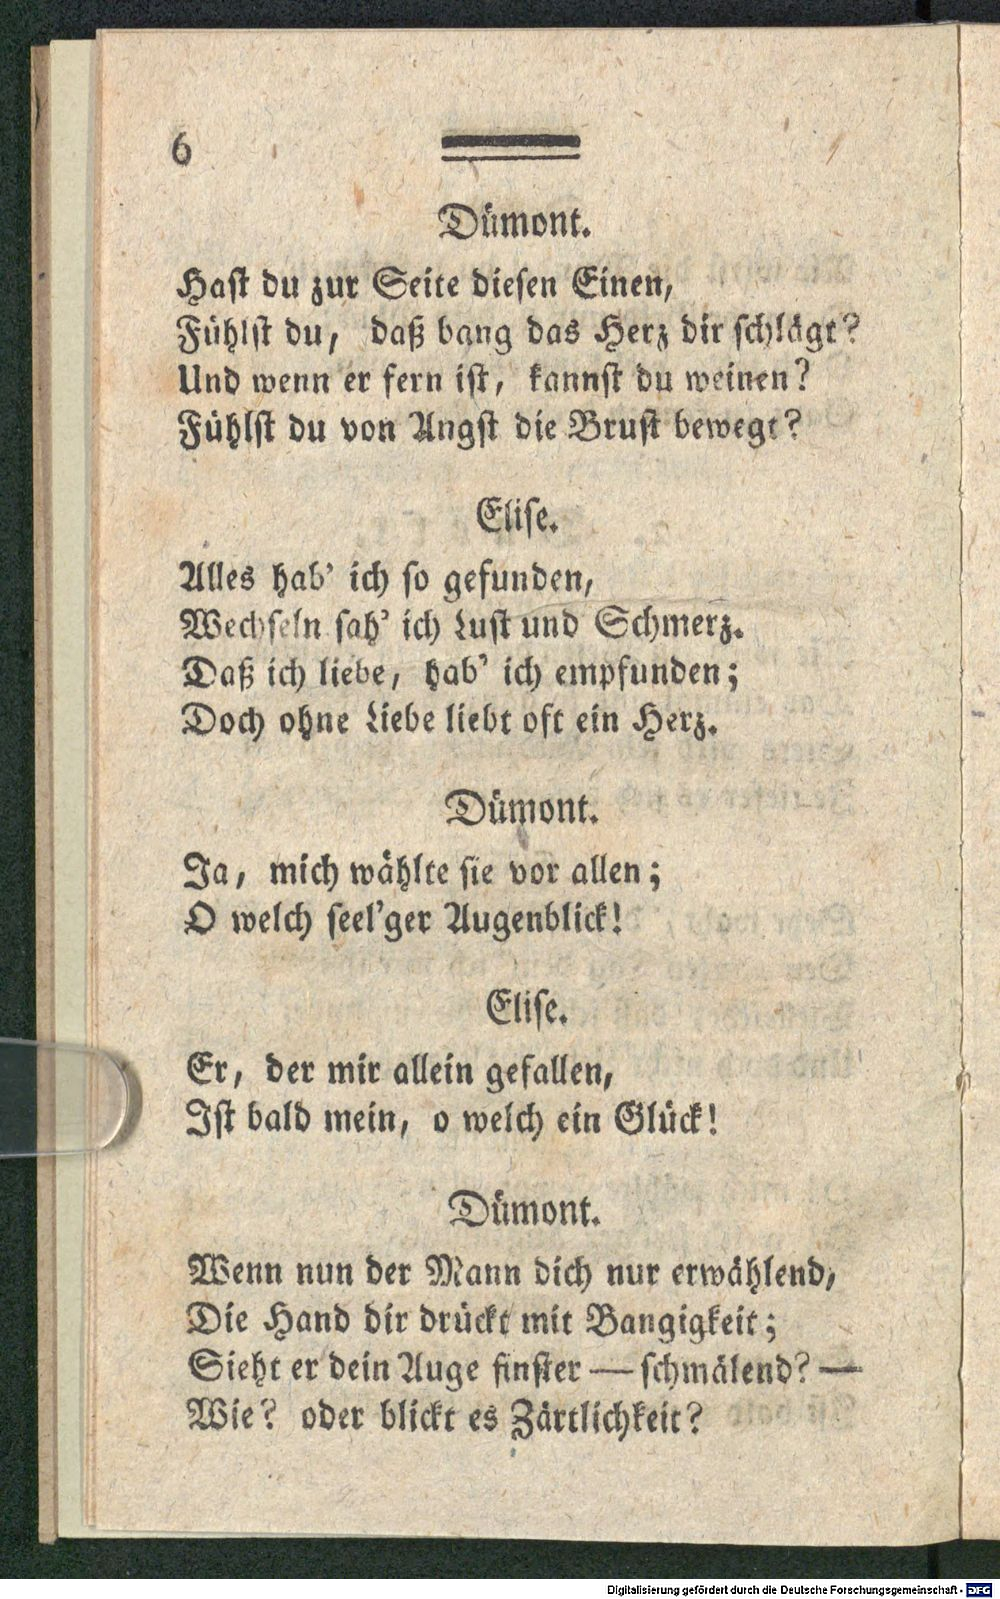 6
Dümont.
Hast du zur Seite diesen Einen,
Fühlst du, daß bang das Herz dir schlägt?
Und wenn er fern ist, kannst du weinen?
Fühlst du von Angst die Brust bewegt?
Elise.
Alles hab' ich so gefunden,
Wechseln sah' ich Lust und Schmerz.
Daß ich liebe, hab' ich empfunden;
Doch ohne Liebe liebt oft ein Herz.
Dümont.
Ja, mich wählte sie vor allen;
O welch seel'ger Augenblick!
Elise.
Er, der mir allein gefallen,
Ist bald mein, o welch ein Glück!
Dümont.
Wenn nun der Mann dich nur erwählend,
Die Hand dir drückt mit Bangigkeit;
Sieht er dein Auge finster — schmälend? —
Wie? oder blickt es Zärtlichkeit?
Digitalisierung gefördert durch die Deutsche Forschungsgemeinschaft - DFG